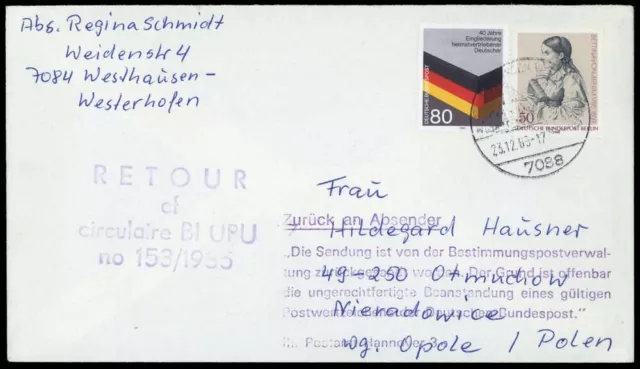 Abs. Regina Schmidt
Weidenstr 4
7084 Westhausen-
Westerhofen
40 Jahre
Eingliederung
heimatvertriebener
Deutscher
DEUTSCHE BUNDESPOST
80
50
DEUTSCHE BUNDESPOST BERLIN
23.12.85-17
7088
RETOUR
cf
circulaire BI UPU
no 153/1985
Frau
Zurück an Absender
Hildegard Hausner
„Die Sendung ist von der Bestimmungspostverwal-
49-250 Otmuchow
tung worden. Der Grund ist offenbar
die ungerechtfertigte Beanstandung eines gültigen
Nieradowice
Deutschen Bundespost."
Hannover 3
wg. Opole / Polen